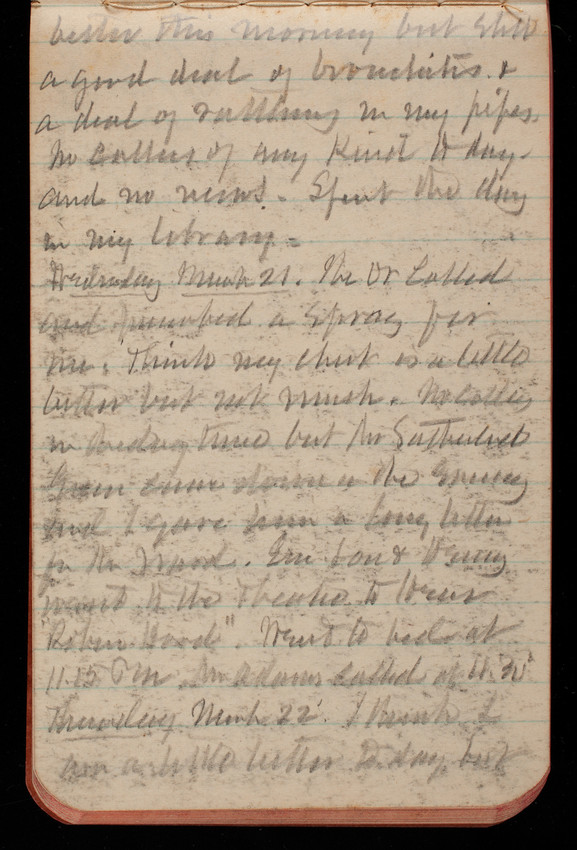 better this morning but still
a good deal of bronchitis &
a deal of rattling in my pipes.
No callers of any kind to day
and no news. Spent the day
in my library.
Wednesday March 21. The Dr called
and prescribed a spray for
me. Think my chest is a little
better but not much. No callers
in during time but Mr Sutherland
came down in the evening
and I gave him a long letter
for Mr Wood. &
went to the Theatre to hear
"Robin Hood". Went to bed at
11.15 P.M. Mr Adams called at
Thursday March 22. I think I
am a little better to day, but